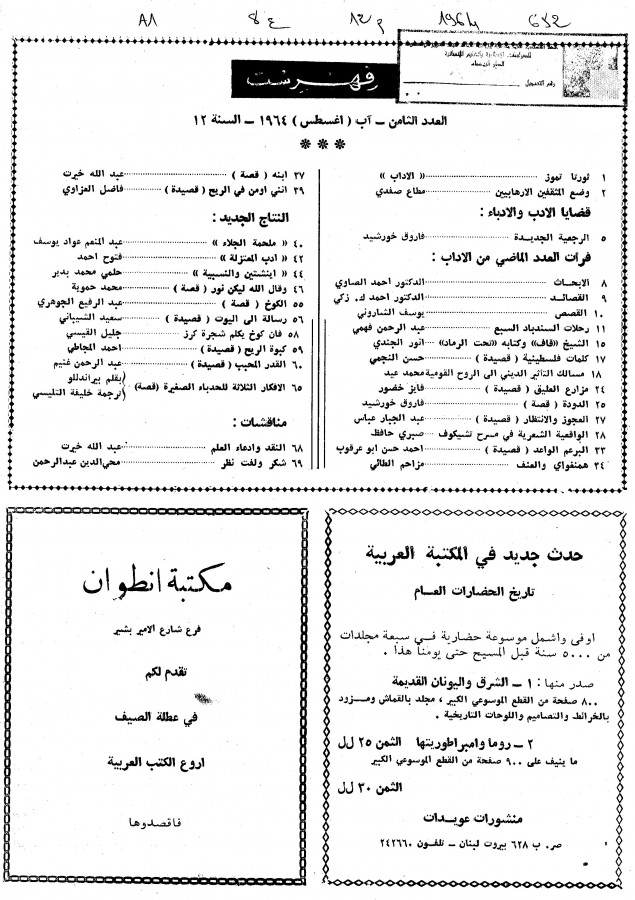 A1 ع 8 م 12 1964 632
رقم التسجيل
فهرست
العدد الثامن ــ آب ( اغسطس ) ١٩٦٤ ــ السنة ١٢
***
١ ثورتا تموز « الاداب »
٢ وضع المثقفين الارهابيين مطاع صفدي
قضايا الادب والادباء :
٥ الرجعية الجديدة فاروق خورشيد
قرأت العدد الماضي من الاداب :
٨ الابحاث الدكتور احمد الصاوي
٩ القصائد الدكتور احمد ك. زكي
١٠ القصص يوسف الشاروني
١١ رحلات السندباد السبع عبد الرحمن فهمي
١٥ الشيخ «قاف» وكتابه «تحت الرماد» انور الجندي
١٧ كلمات فلسطينية ( قصيدة ) حسن النجمي
١٨ مسالك التأثير الديني الى الروح القومية محمد عيد
٢٤ مزارع العليق ( قصيدة ) فايز خضور
٢٥ الدودة ( قصة ) فاروق خورشيد
٢٧ العجوز والانتظار ( قصيدة ) عبد الجبار عباس
٢٨ الواقعية الشعرية في مسرح تشيكوف صبري حافظ
٣٣ البرعم الواعد ( قصيدة ) احمد حسن ابو عرقوب
٣٤ همنغواي والعنف مزاحم الطائي
٣٧ ابنه ( قصة ) عبد الله خيرت
٣٩ انني اومن في الريح ( قصيدة ) فاضل العزاوي
النتاج الجديد :
٤٠ « ملحمة الجلاء » عبد المنعم عواد يوسف
٤٢ « ادب المعتزلة » فتوح احمد
٤٤ « اينشتين والنسبية » حلمي محمد بدير
٤٦ وقال الله ليكن نور ( قصة ) محمد حموية
٥٥ الكوخ ( قصة ) عبد الرفيع الجوهري
٥٦ رسالة الى اليوت ( قصيدة ) سعيد الشيباني
٥٨ فان كوخ يكلم شجرة كرز جليل القيسي
٥٩ كبوة الريح ( قصيدة ) احمد المجاطي
٦٠ القدر المحيب ( قصيدة ) عبد الرحمن غنيم
٦٥ الافكار الثلاثة للحدباء الصغيرة (قصة) بقلم بيراندللو
ترجمة خليفة التليسي
مناقشات :
٦٨ النقد وادعاء العلم عبد الله خيرت
٦٩ شكر ولفت نظر محيي الدين عبدالرحمن
حدث جديد في المكتبة العربية
تاريخ الحضارات العام
اوفى واشمل موسوعة حضارية في سبعة مجلدات
من ٥٠٠٠ سنة قبل المسيح حتى يومنا هذا .
صدر منها : ١ ــ الشرق واليونان القديمة
٨٠٠ صفحة من القطع الموسوعي الكبير ، مجلد بالقماش ومزود
بالخرائط والتصاميم واللوحات التاريخية .
الثمن ٢٥ ل.ل
٢ ــ روما وامبراطوريتها
ما ينيف على ٩٠٠ صفحة من القطع الموسوعي الكبير
الثمن ٣٠ ل.ل
منشورات عويدات
ص. ب ٦٢٨ بيروت لبنان ــ تلفون ٢٤٢٦٦٠
مكتبة انطوان
فرع شارع الامير بشير
تقدم لكم
في عطلة الصيف
اروع الكتب العربية
فاقصدوها